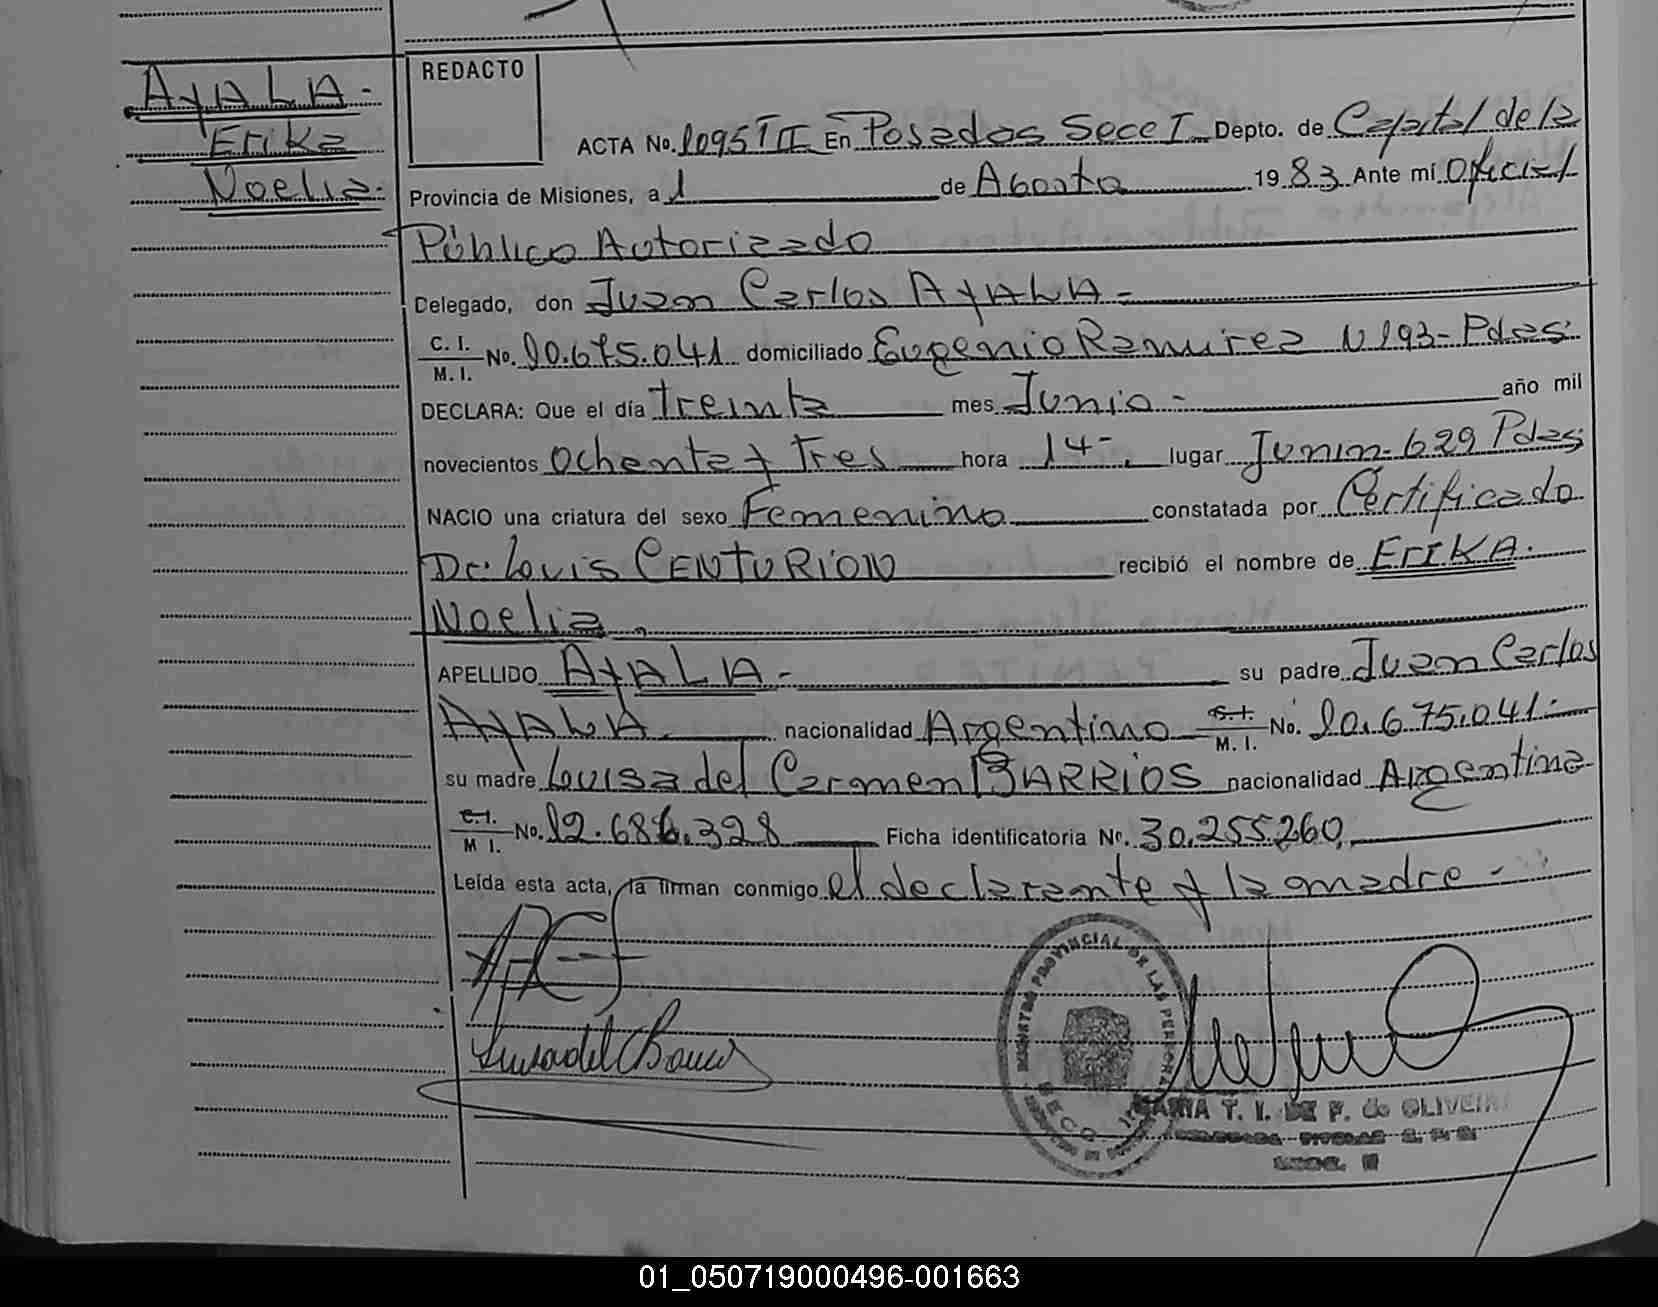 AYALA.
Erika
Noelia.
REDACTO
ACTA No. 1095 T II En Posadas Secc I Depto. de Capital de la
Provincia de Misiones, a 1 de Agosto 1983 Ante mí Oficial
Público Autorizado
Delegado, don Juan Carlos AYALA-
C. I.
M. I. No. 10.675.041 domiciliado Eugenio Ramirez N 193-Pdas.
DECLARA: Que el día treinta mes Junio- año mil
novecientos Ochenta y Tres hora 14-. lugar Junin-629 Pdas
NACIO una criatura del sexo Femenino constatada por Certificado
Dr. Louis CENTURION recibió el nombre de ERIKA.
Noelia.
APELLIDO AYALA- su padre Juan Carlos
AYALA. nacionalidad Argentino C. I. M. I. No. 10.675.041.
su madre Louisa del Carmen BARRIOS nacionalidad Argentina
C. I.
M I. No. 12.686.328 Ficha identificatoria No. 30.255.260,
Leída esta acta, la firman conmigo el declarante y la madre-
REGISTRO PROVINCIAL DE LAS PERSONAS
SECC.
MARIA T. I. DE F. de OLIVEIRA
SECC.
01_050719000496-001663